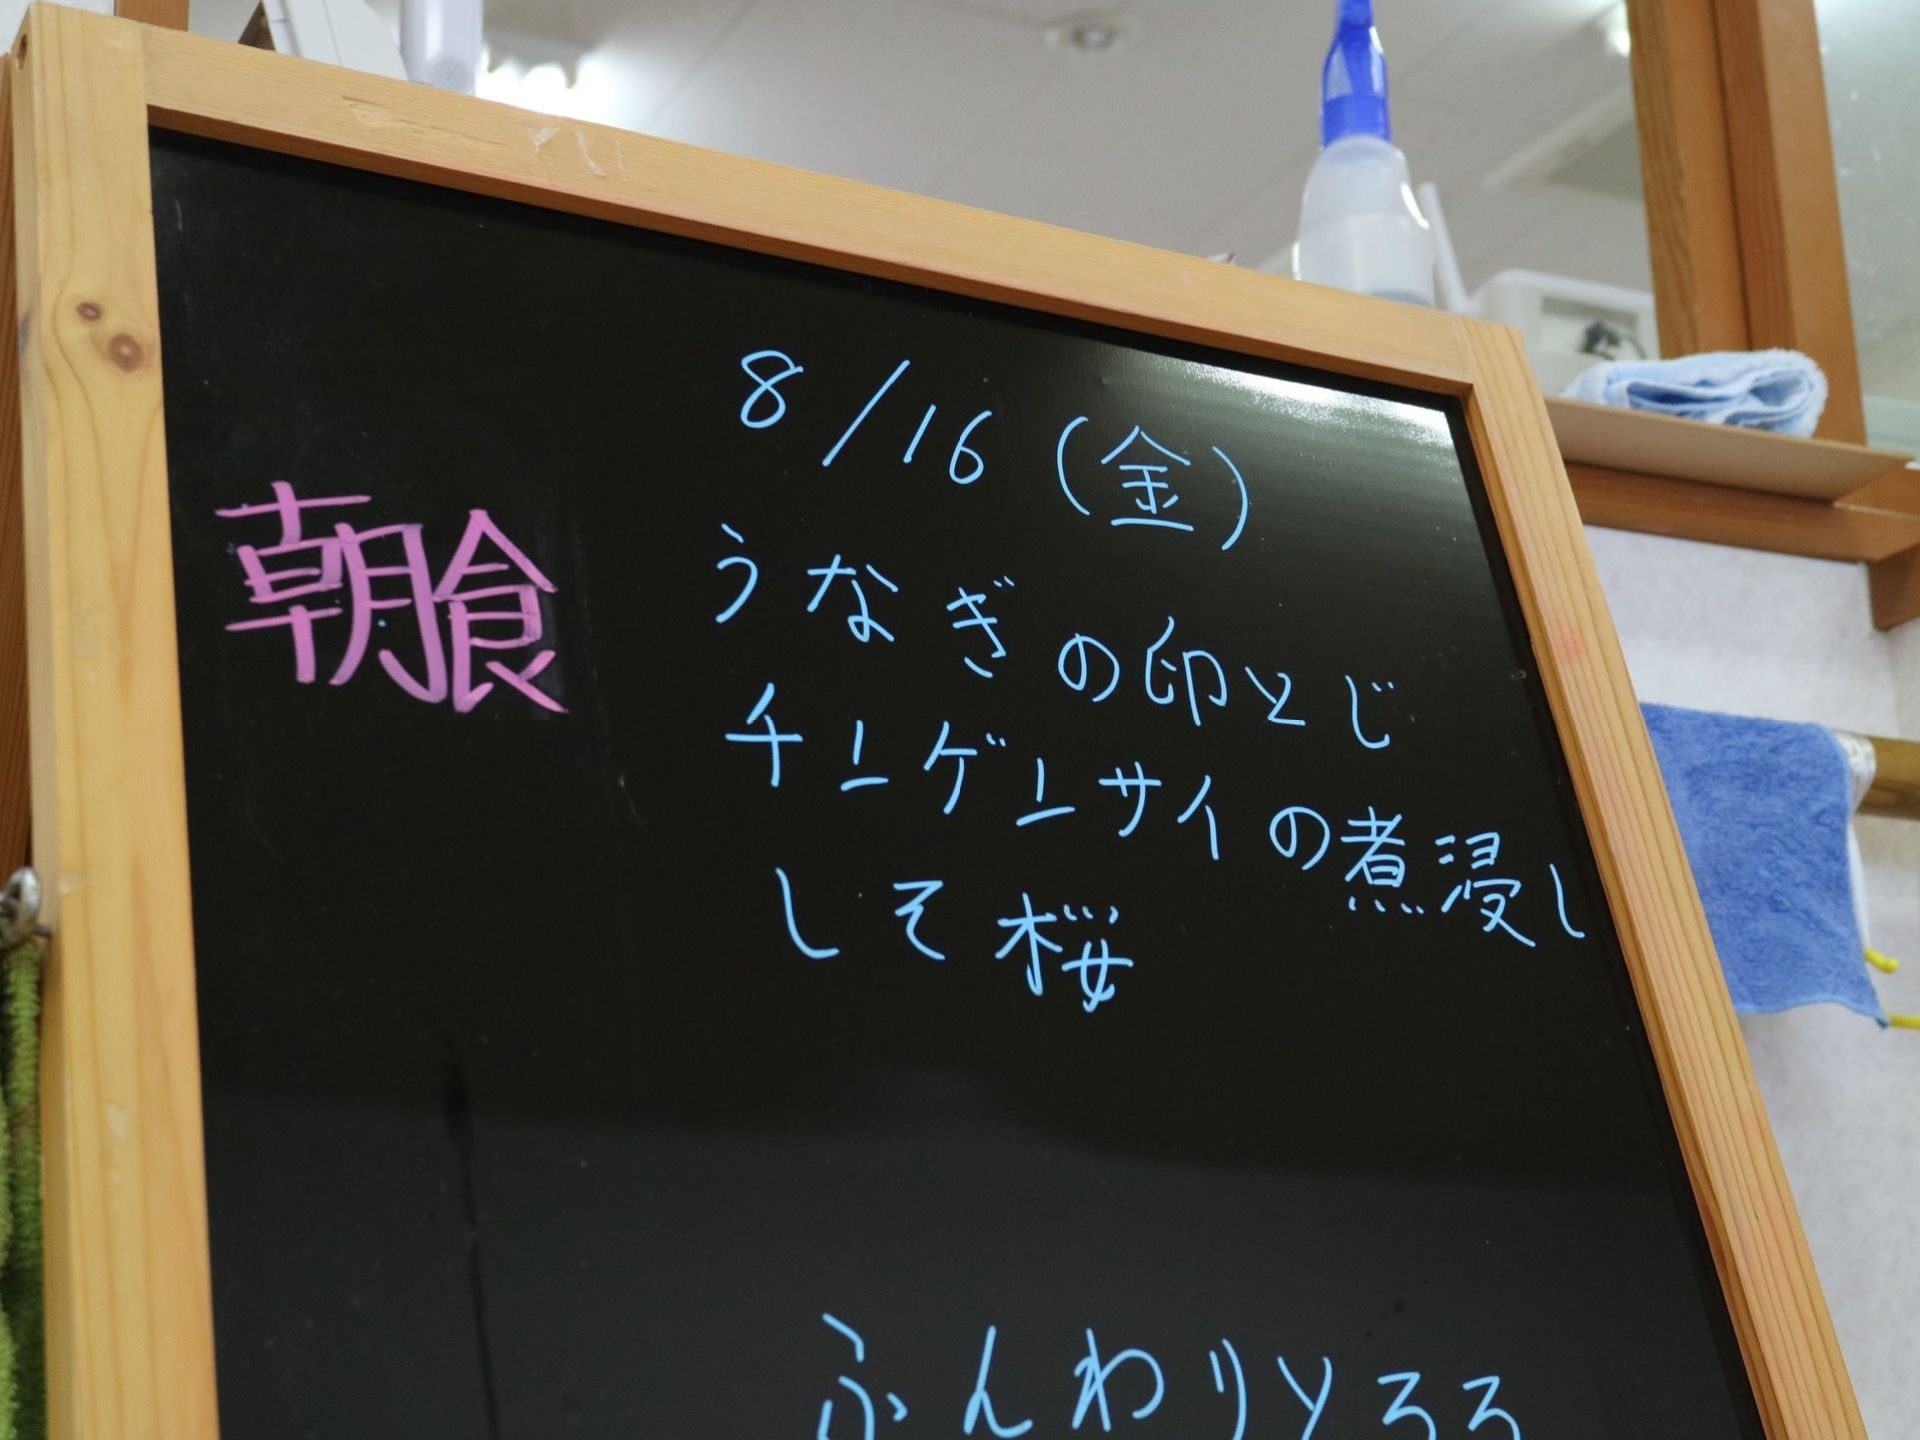 8/16(金)
朝食
うなぎの印とじ
チンゲンサイの煮浸し
しそ桜
ふんわりとろろ